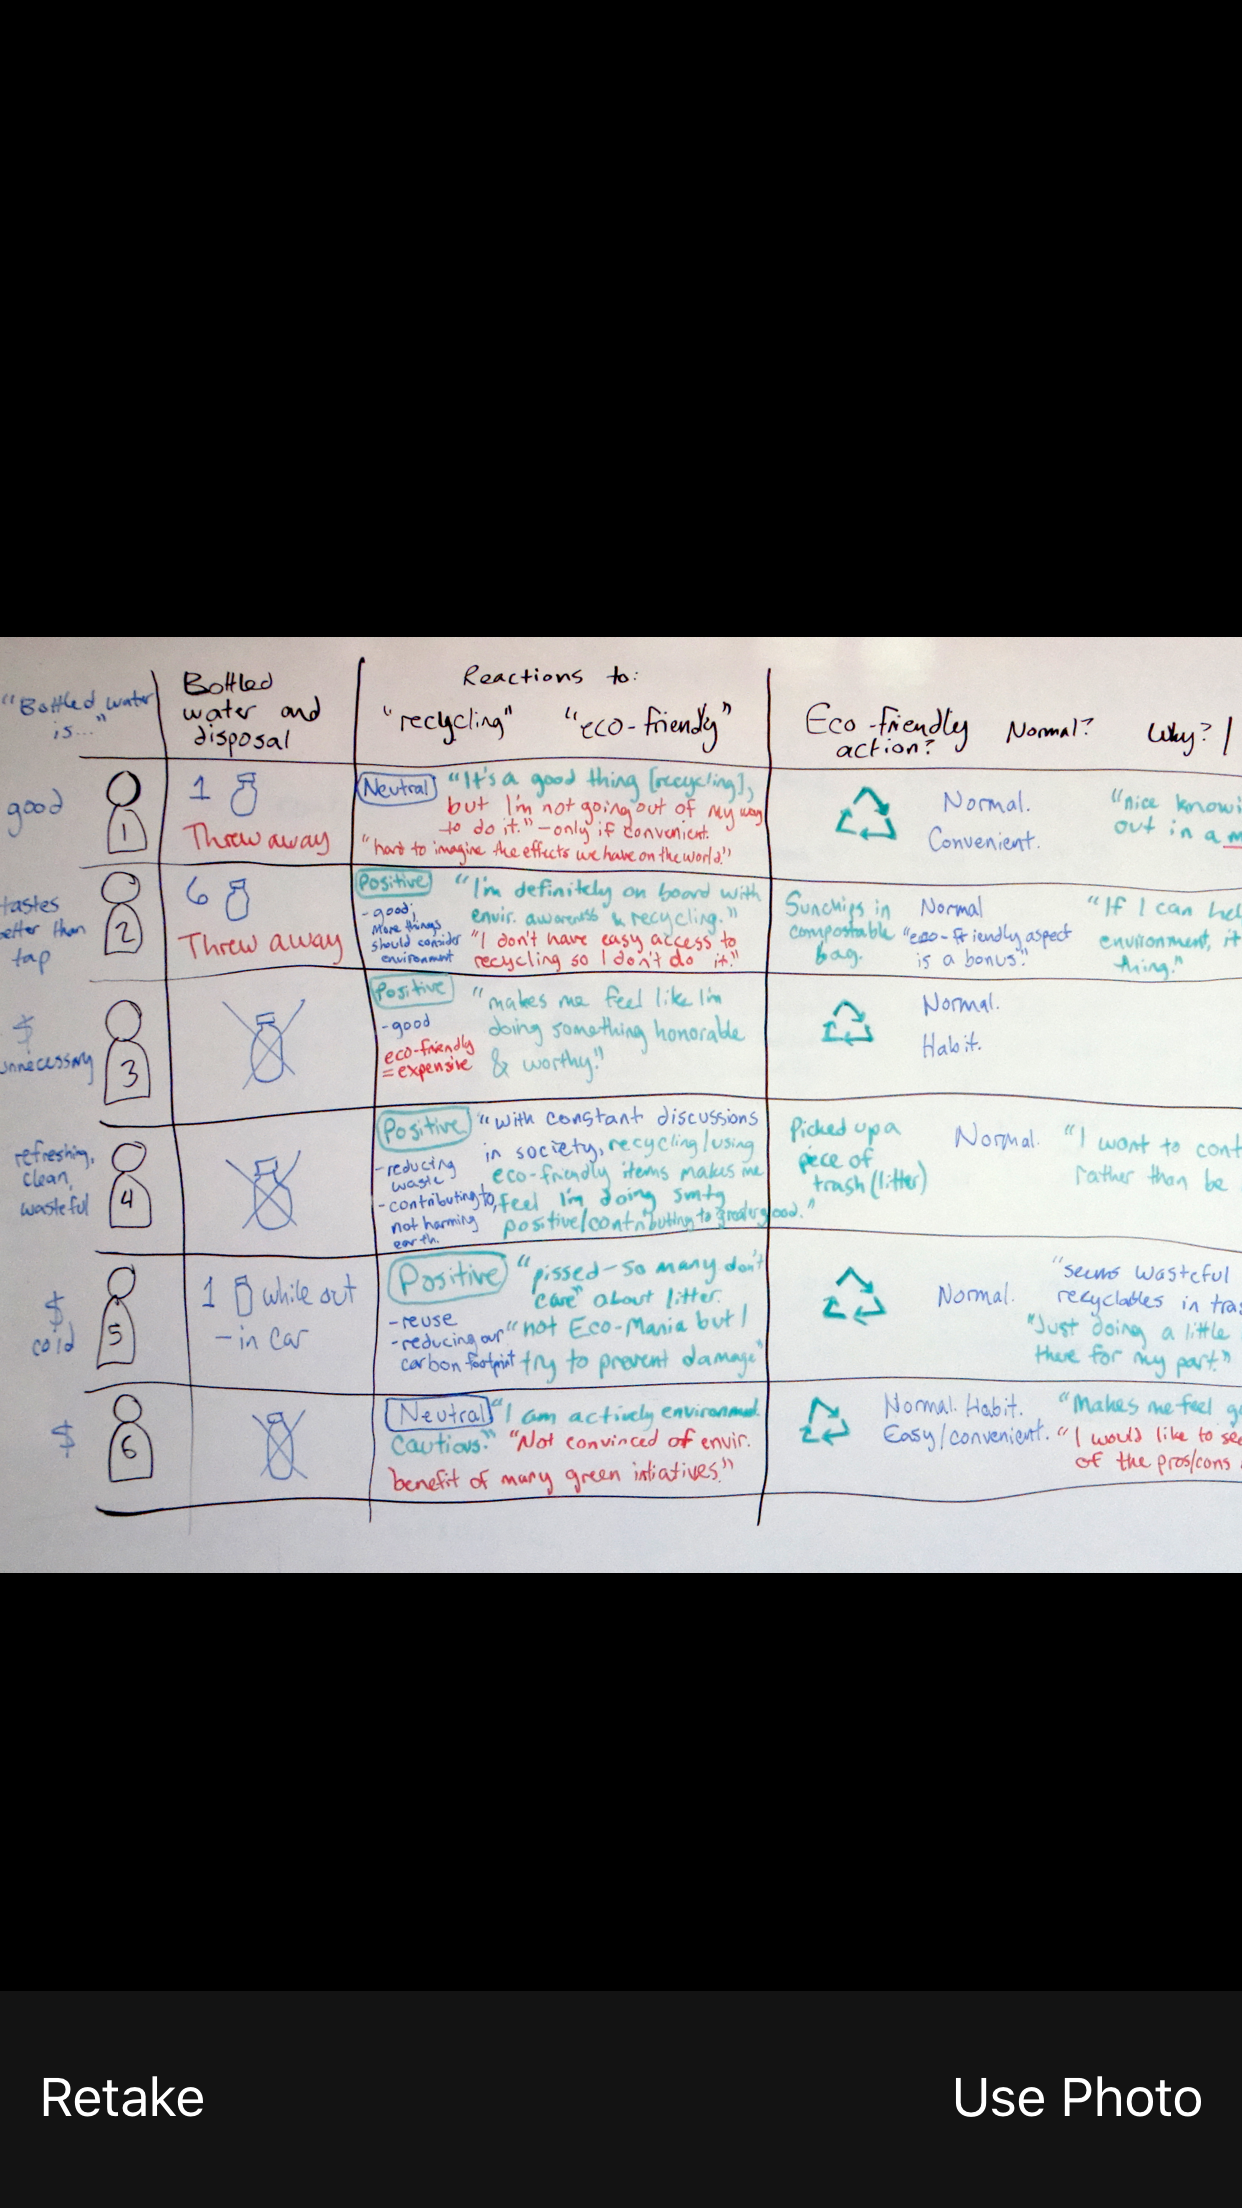 "Bottled water
is..."
Bottled
water and
disposal
Reactions to:
"recycling" "eco-friendly"
Eco-friendly
action?
Normal?
Why?
good
1
1
Threw away
Neutral
"It's a good thing [recycling],
but I'm not going out of my way
to do it." - only if convenient.
"hard to imagine the effects we have on the world."
Normal.
Convenient.
"nice
out in a
tastes
better than
tap
2
6
Threw away
Positive
- good;
More things
should consider
environment
"I'm definitely on board with
envir. awareness & recycling."
"I don't have easy access to
recycling so I don't do it."
Sunchips in
compostable
bag.
Normal
"eco-friendly aspect
is a bonus."
"If I can
environment, it
thing."
$
unnecessary
3
Positive
- good
eco-friendly
= expensive
"makes me feel like I'm
doing something honorable
& worthy."
Normal.
Habit.
refreshing,
clean,
wasteful
4
Positive
- reducing
waste
- contributing to,
not harming
earth.
"with constant discussions
in society, recycling/using
eco-friendly items makes me
feel I'm doing smtg
positive/contributing to greater good."
Picked up a
piece of
trash (litter)
Normal.
"I want to
rather than be
$
cold
5
1 while out
- in car
Positive
- reuse
- reducing our
carbon footprint
"pissed - so many don't
care" about litter.
"not Eco-Mania but I
try to prevent damage"
Normal.
"seems wasteful
recyclables in
"Just doing a little
there for my part."
$
6
Neutral
"I am actively environmd.
cautious." "Not convinced of envir.
benefit of many green intiatives."
Normal. Habit.
Easy/convenient.
"Makes me feel
"I would like to
of the pros/cons
Retake
Use Photo